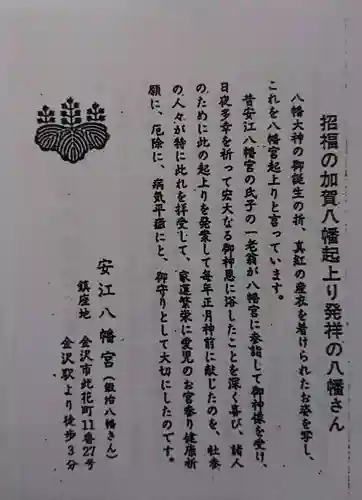 招福の加賀八幡起上り発祥の八幡さん
八幡大神の御誕生の折、真紅の産衣を着けられたお姿を写し、
これを八幡宮起上りと言っています。
昔安江八幡宮の氏子の一老翁が八幡宮に参詣して御神様を受け、
日夜多幸を祈って宏大なる御神恩に浴したことを深く喜び、諸人
のために此の起上りを発案して毎年正月神前に献じたのを、社参
の人々が特に此れを拝受して、家運繁栄に愛児のお宮参り健康祈
願に、厄除に、病気平癒にと、御守りとして大切にしたのです。
安江八幡宮(鍛治八幡さん)
鎮座地 金沢市此花町11番27号
金沢駅より徒歩3分